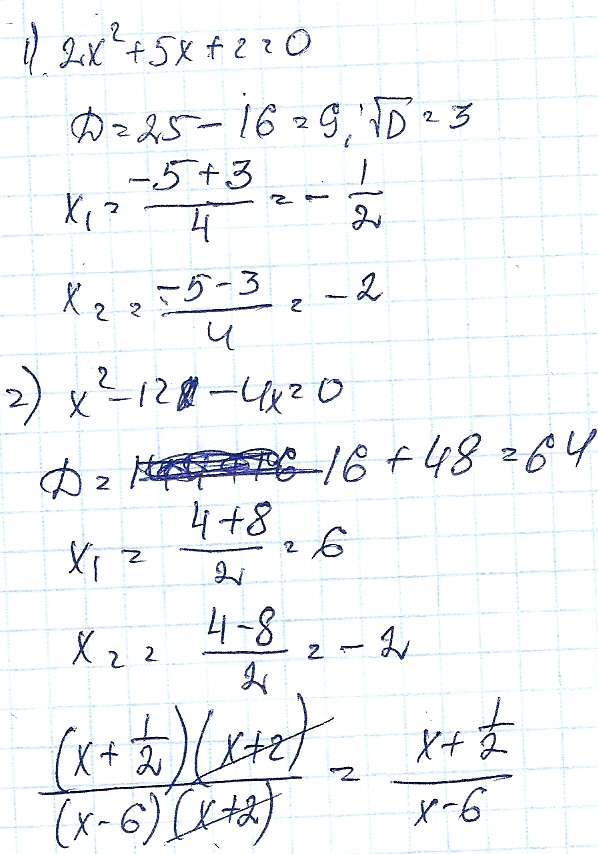 1). 2x² + 5x + 2 = 0
D = 25 - 16 = 9, √D = 3
x₁ = (-5 + 3)/4 = - 1/2
x₂ = (-5 - 3)/4 = - 2
2) x² - 12 - 4x = 0
D = 16 + 48 = 64
x₁ = (4 + 8)/2 = 6
x₂ = (4 - 8)/2 = - 2
((x + 1/2)(x + 2))/((x - 6)(x + 2)) = (x + 1/2)/(x - 6)